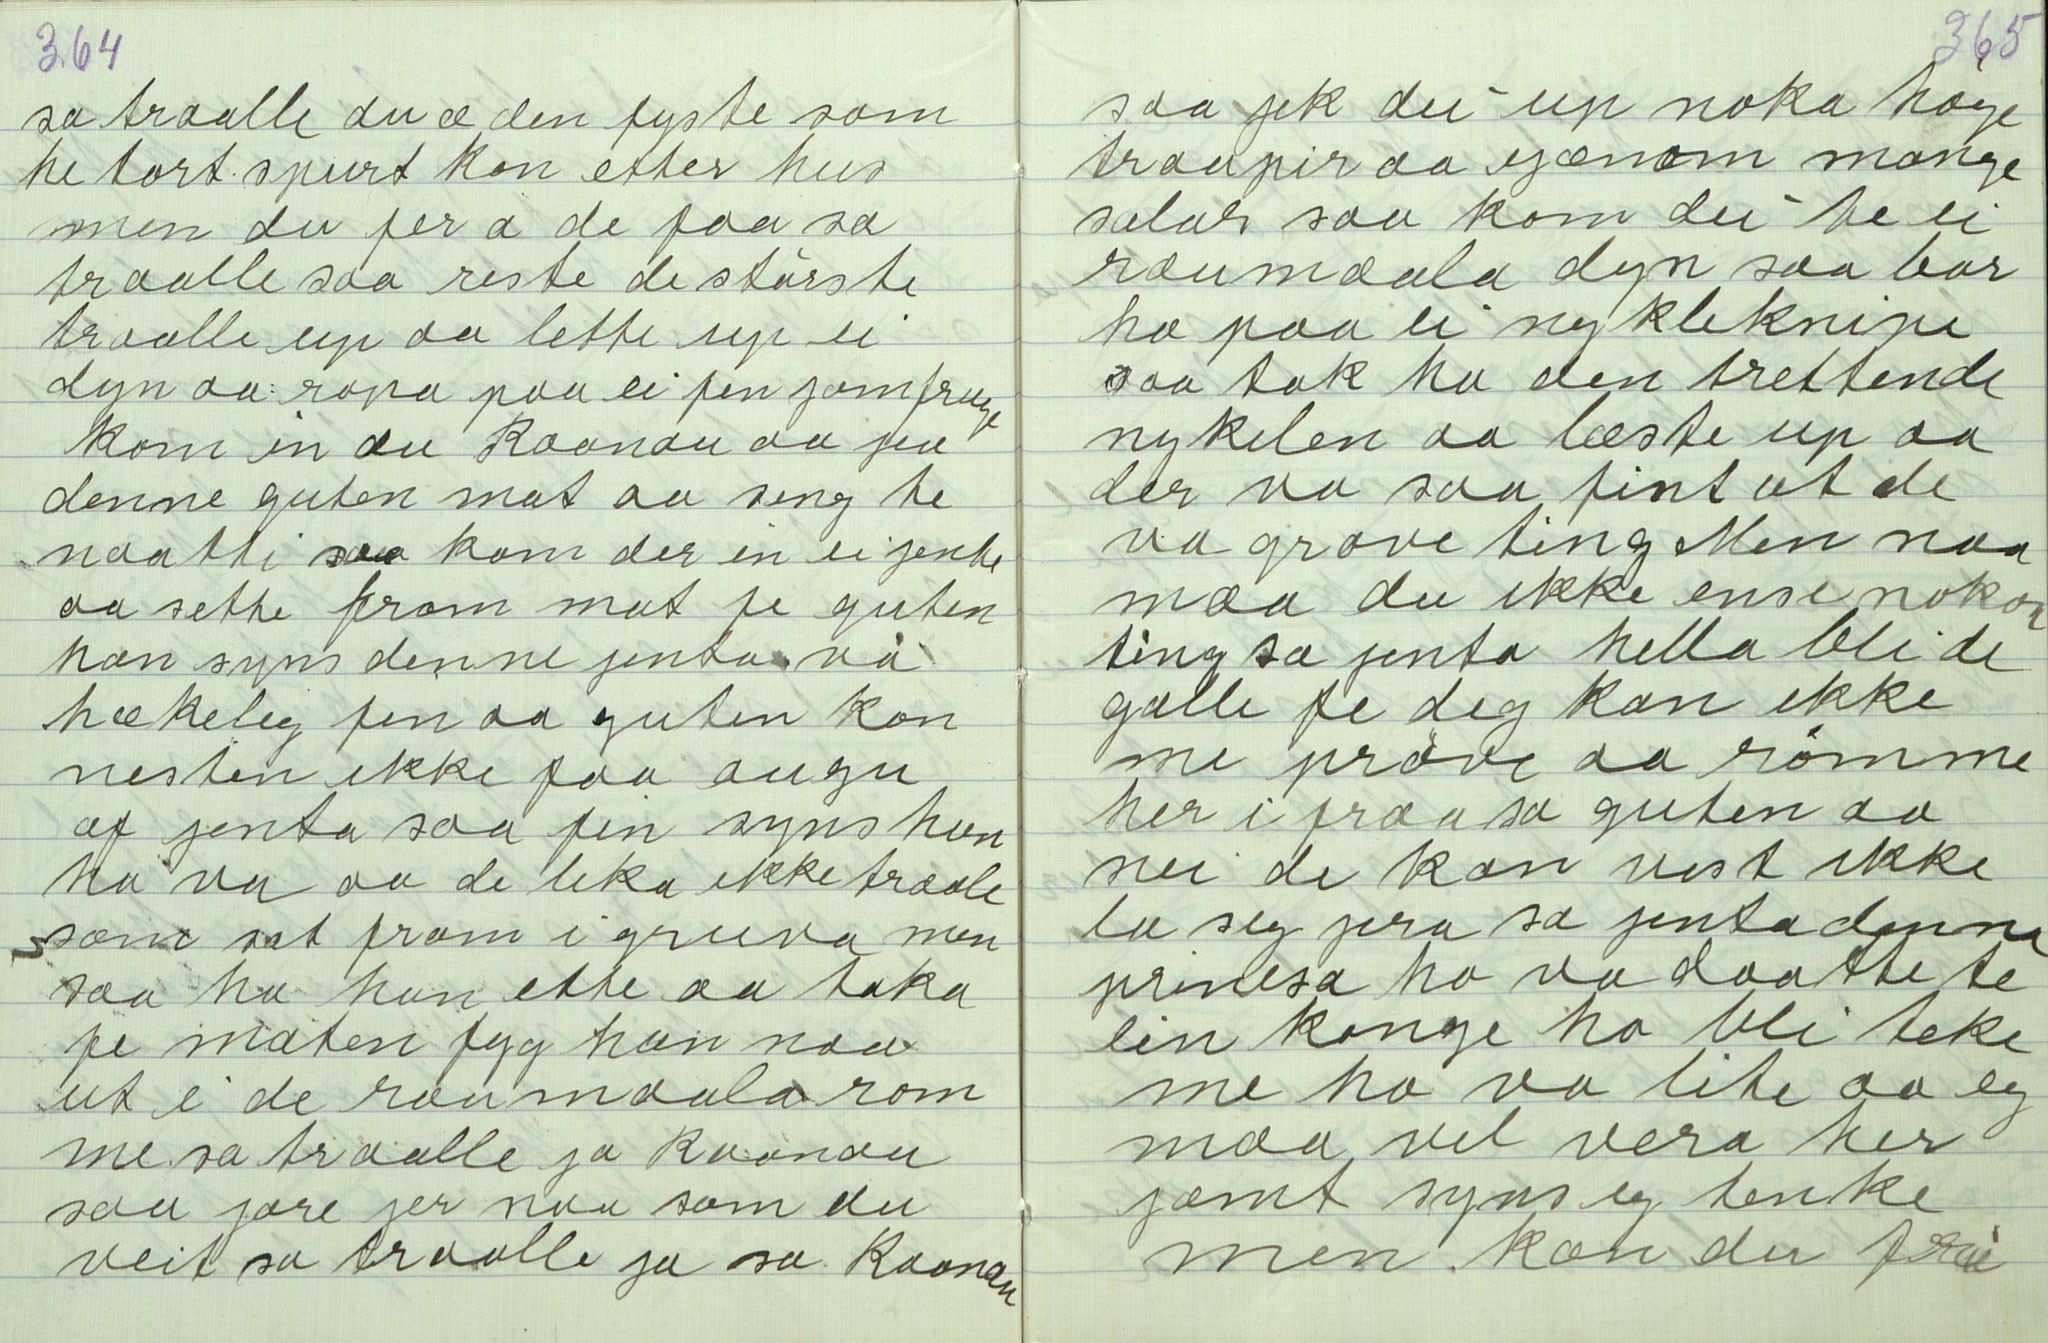 364
sa traalle du æ den fyste som
he tort spurt kon etter hus
men du fer a de faa sa
traalle saa reste de störste
traalle up aa lette up ei
dyn aa ropa paa ei fen jomfruge
kom in du Raanau aa jeu
denne guten mat aa seng te
naatti saa kom der in ei jente
aa sette fram mat fe guten
han syns denne jenta va
hækeleg fen aa guten kon
nesten ikke faa augu
af jenta saa fin syns han
ha va aa de leka ikke traale
som sat fram i gruva men
saa ha han ette aa taka
fe maten fyg han naa
ut i de raumaala rom
me sa traalle ja Raanau
saa jore jer naa som du
veit sa traalle ja sa Raanau
365
saa jek dei up noka höge
traapir aa gjænom mange
salar saa kom dei te ei
raumaala dyn saa bar
ho paa ei nykleknipe
saa tok ho den trettende
nykelen aa læste up aa
der va saa fint at de
va grove ting Men naa
maa du ikke ense nokon
ting sa jenta hella bli de
galle fe deg kan ikke
me pröve aa römme
her i fraa sa guten aa
nei de kan vest ikke
la seg jera sa jenta denna
prinesa ho va daatte te
ein konge ho bli teke
me ho va lite aa eg
maa vel vera her
jamt syns eg tenke
men kan du fræi